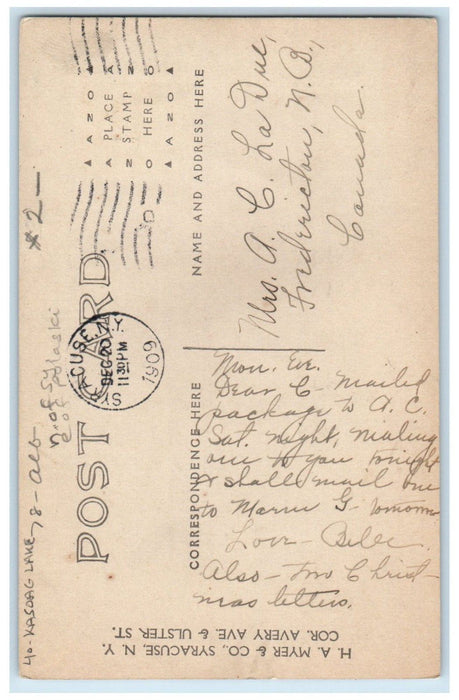 POST CARD
CORRESPONDENCE HERE
NAME AND ADDRESS HERE
AZO
PLACE
STAMP
HERE
AZO
SYRACUSE, N.Y.
DEC 20
11 30 PM
1909
Mon. Eve.
Dear C- Mailed
package to A. C.
Sat. night, mailing
one to you tonight
& shall mail one
to Marne G- tomorrow
Love-
Also- Two Christ-
mas letters.
Mrs. A. C. La Due,
Fredericton, N. B.,
Canada.
H. A. MYER & CO., SYRACUSE, N. Y.
COR. AVERY AVE. & ULSTER ST.
40-KASOAG LAKE, 78-alb-
N of Sy
E of Polaski
#2-